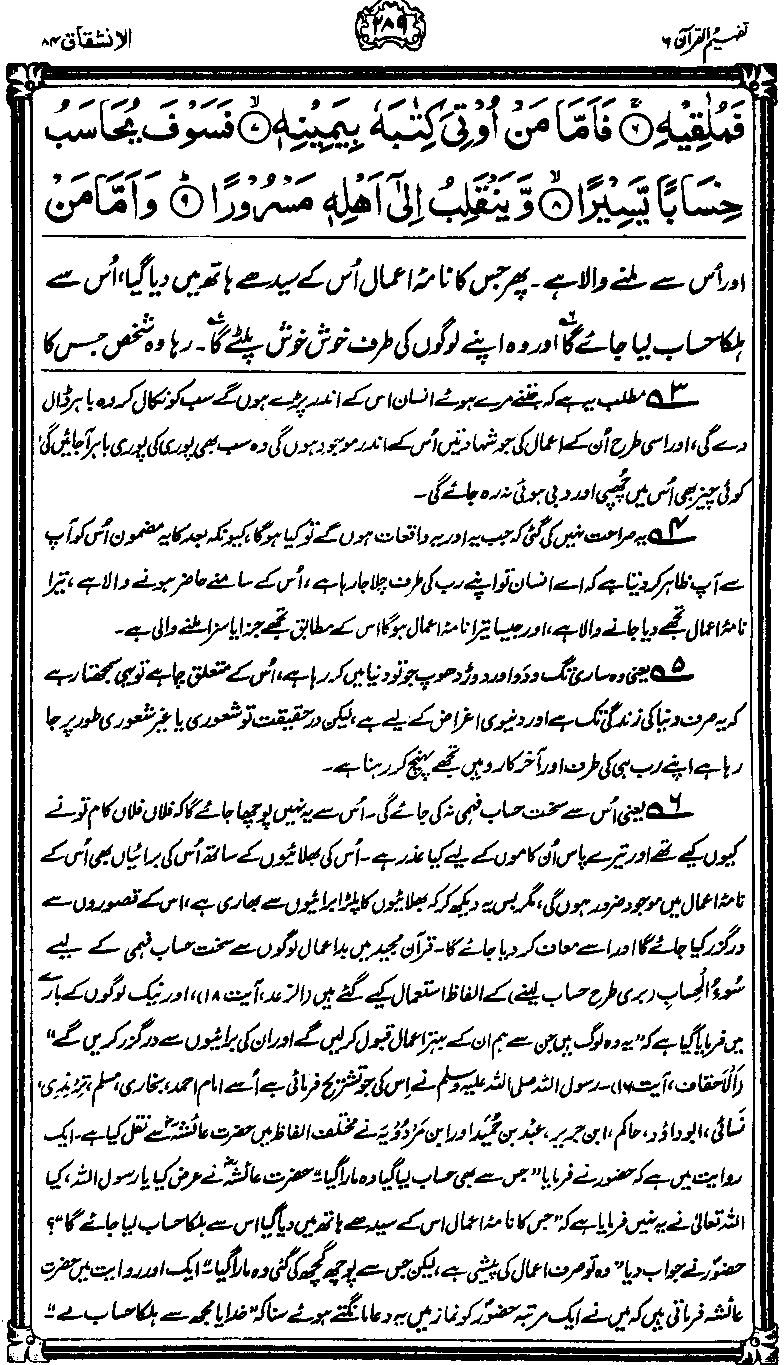 تفہیم القرآن ۶
۲۸۹
الانشقاق ۸۴
فَمُلٰقِیْهِ ۶ فَاَمَّا مَنْ اُوْتِیَ كِتٰبَهٗ بِیَمِیْنِهٖ ۷ فَسَوْفَ یُحَاسَبُ
حِسَابًا یَّسِیْرًا ۸ وَّیَنْقَلِبُ اِلٰۤی اَهْلِهٖ مَسْرُوْرًا ۹ وَاَمَّا مَنْ
اور اُس سے ملنے والا ہے۔ پھر جس کا نامۂ اعمال اُس کے سیدھے ہاتھ میں دیا گیا، اُس سے
ہلکا حساب لیا جائے گا ۶ اور وہ اپنے لوگوں کی طرف خوش خوش پلٹے گا ۷۔ رہا وہ شخص جس کا
۳ مطلب یہ ہے کہ جتنے مرے ہوئے انسان اس کے اندر پڑے ہوں گے سب کو نکال کر وہ باہر ڈال
دے گی، اور اسی طرح اُن کے اعمال کی جو شہادتیں اُس کے اندر موجود ہوں گی وہ سب بھی پوری کی پوری باہر آجائیں گی،
کوئی چیز بھی اُس میں چھپی اور دبی ہوئی نہ رہ جائے گی۔
۴ یہ صراحت نہیں کی گئی کہ جب یہ اور یہ واقعات ہوں گے تو کیا ہوگا، کیونکہ بعد کا یہ مضمون اُس کو آپ
سے آپ ظاہر کر دیتا ہے کہ اے انسان تو اپنے رب کی طرف چلا جا رہا ہے، اُس کے سامنے حاضر ہونے والا ہے، تیرا
نامۂ اعمال تجھے دیا جانے والا ہے، اور جیسا تیرا نامۂ اعمال ہوگا اس کے مطابق تجھے جزا یا سزا ملنے والی ہے۔
۵ یعنی وہ ساری تگ و دو اور دوڑ دھوپ جو تو دنیا میں کر رہا ہے، اُس کے متعلق چاہے تو یہی سمجھتا رہے
کہ یہ صرف دنیا کی زندگی تک ہے اور دنیوی اغراض کے لیے ہے، لیکن درحقیقت تو شعوری یا غیر شعوری طور پر جا
رہا ہے اپنے رب ہی کی طرف اور آخر کار وہیں تجھے پہنچ کر رہنا ہے۔
۶ یعنی اُس سے سخت حساب فہمی نہ کی جائے گی۔ اُس سے یہ نہیں پوچھا جائے گا کہ فلاں فلاں کام تو نے
کیوں کیے تھے اور تیرے پاس اُن کاموں کے لیے کیا عذر ہے۔ اُس کی بھلائیوں کے ساتھ اُس کی برائیاں بھی اُس کے
نامۂ اعمال میں موجود ضرور ہوں گی، مگر بس یہ دیکھ کر کہ بھلائیوں کا پلڑا برائیوں سے بھاری ہے، اس کے قصوروں سے
درگزر کیا جائے گا اور اسے معاف کر دیا جائے گا۔ قرآن مجید میں بداعمال لوگوں سے سخت حساب فہمی کے لیے
سُوءُ الْحِسَاب (بری طرح حساب لینے) کے الفاظ استعمال کیے گئے ہیں (الرعد، آیت ۱۸)، اور نیک لوگوں کے بارے
میں فرمایا گیا ہے کہ "یہ وہ لوگ ہیں جن سے ہم ان کے بہتر اعمال قبول کرلیں گے اور ان کی برائیوں سے درگزر کریں گے"
(الاحقاف، آیت ۱۶)۔ رسول اللہ صلی اللہ علیہ وسلم نے اِس کی جو تشریح فرمائی ہے اُسے امام احمد، بخاری، مسلم، ترمذی،
نسائی، ابوداؤد، حاکم، ابن جریر، عبد بن حُمَید اور ابن مَرْدُوْیَہ نے مختلف الفاظ میں حضرت عائشہؓ سے نقل کیا ہے۔ ایک
روایت میں ہے کہ حضور نے فرمایا "جس سے بھی حساب لیا گیا وہ مارا گیا"۔ حضرت عائشہؓ نے عرض کیا یا رسول اللہ، کیا
اللہ تعالیٰ نے یہ نہیں فرمایا ہے کہ "جس کا نامۂ اعمال اس کے سیدھے ہاتھ میں دیا گیا اس سے ہلکا حساب لیا جائے گا"؟
حضورؐ نے جواب دیا "وہ تو صرف اعمال کی پیشی ہے، لیکن جس سے پوچھ گچھ کی گئی وہ مارا گیا"۔ ایک اور روایت میں حضرت
عائشہ فرماتی ہیں کہ میں نے ایک مرتبہ حضورؐ کو نماز میں یہ دعا مانگتے ہوئے سنا کہ "خدایا مجھ سے ہلکا حساب لے"۔